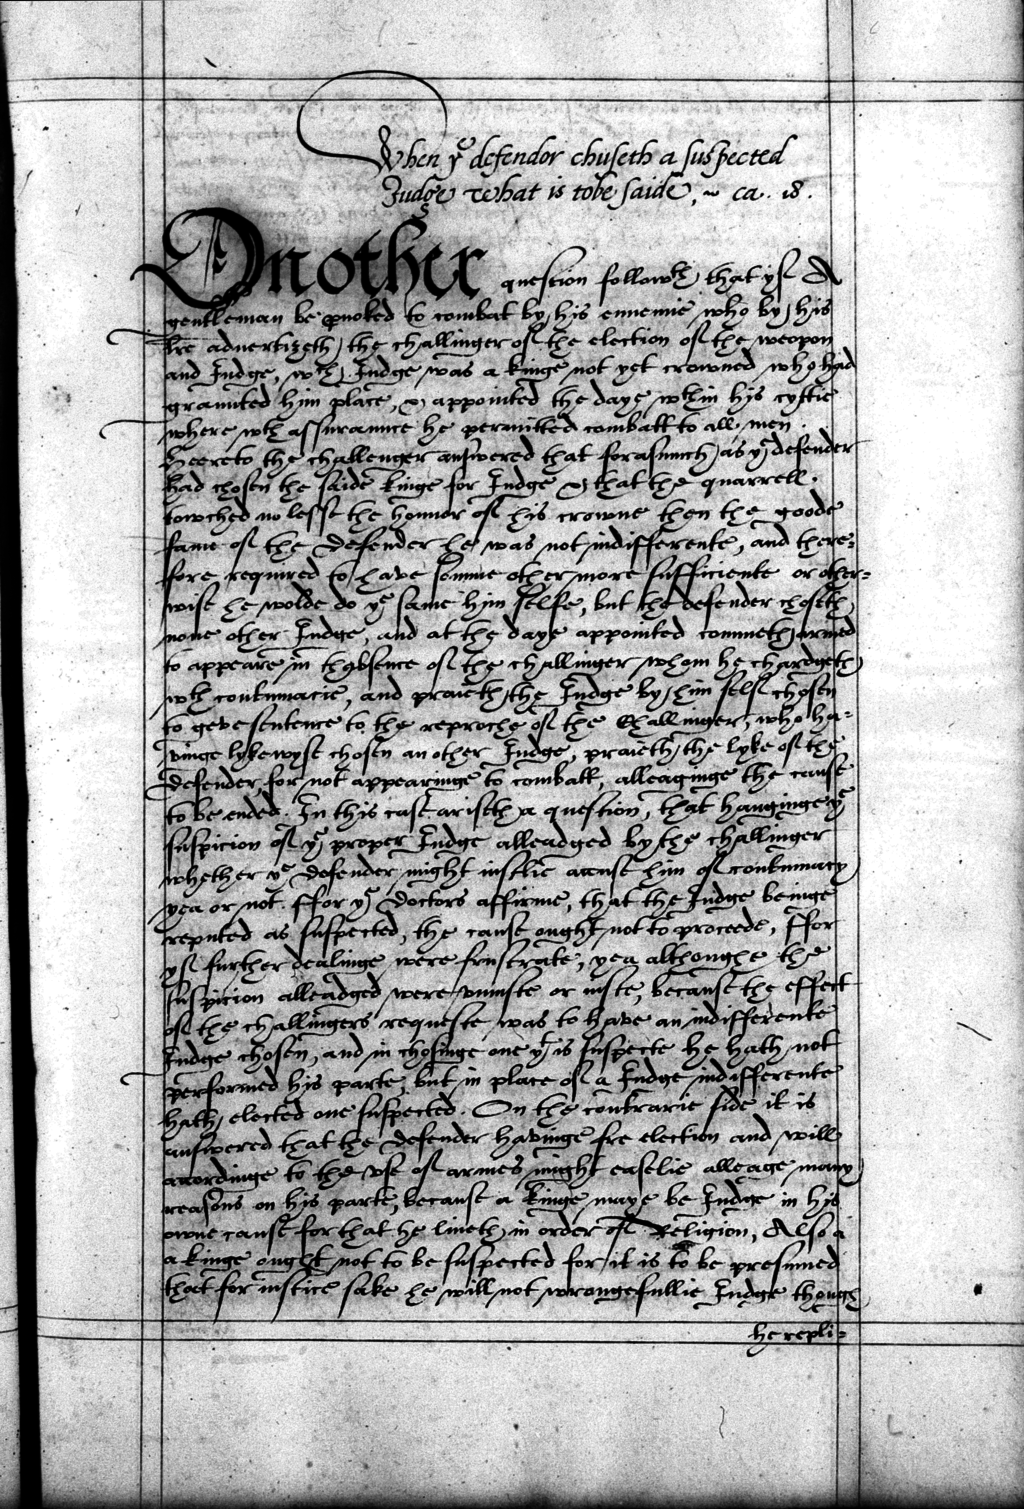 When yͤ defendor chuseth a suspected
Judge what is to be saide, ~ ca. 18.
Another question followth that yf A
gentleman be ꝓuoked to combat by his ennemie who by his
lre aduertizeth the challinger of the election of the weopon
and Judge, wch Judge was a kinge not yet crowned who had
graunted him place, & appointed the daye wthin his cyttie
where wth assuraunce he permitted combatt to all men.
Heereto the challenger answered that forasmuch as yͤ defender
had chosen the saide kinge for Judge & that the quarrell
towched no lesse the honnor of his crowne then the goode
fame of the defender he was not indifferente, and there=
fore required to have somme other more sufficiente or other=
wise he wolde do yͤ same him selfe, but the defender choseth
none other Judge, and at the daye appointed commeth armed
to appeare in thabsence of the challinger whom he chardgeth
wth contumacie, and praieth the Judge by him self chosen
to geve sentence to the reproche of the Challinger, who ha=
vinge lykewyse chosen an other Judge, praieth the lyke of the
defender, for not appearinge to combatt, alleaginge the cause
to be ended. In this case ariseth a question, that hanginge yͤ
suspicion of yͤ proper Judge alleadged by the challinger
whether yͤ defender might iustlie accuse him of contumacy
yea or not. ffor yͤ doctors affirme, that the Judge beinge
reputed as suspected, the cause ought not to proceede, ffor
yf further dealinge were frustrate, yea althoughe the
suspicion alleadged were vniuste or iuste, because the effect
of the challingers requeste was to have an indifferente
Judge chosen, and in chosinge one yt is suspecte he hath not
performed his parte, but in place of a Judge indifferente
hath elected one suspected. On the contrarie side it is
answered that the defender havinge fre election and will
accordinge to the vse of armes might easelie alleage many
reasons on his parte, because a kinge maye be Judge in his
owne cause for that he liueth in order of Religion, Also
a kinge ought not to be suspected for it is to be presumed
that for iustice sake he will not wrongefullie Judge though
he repli=